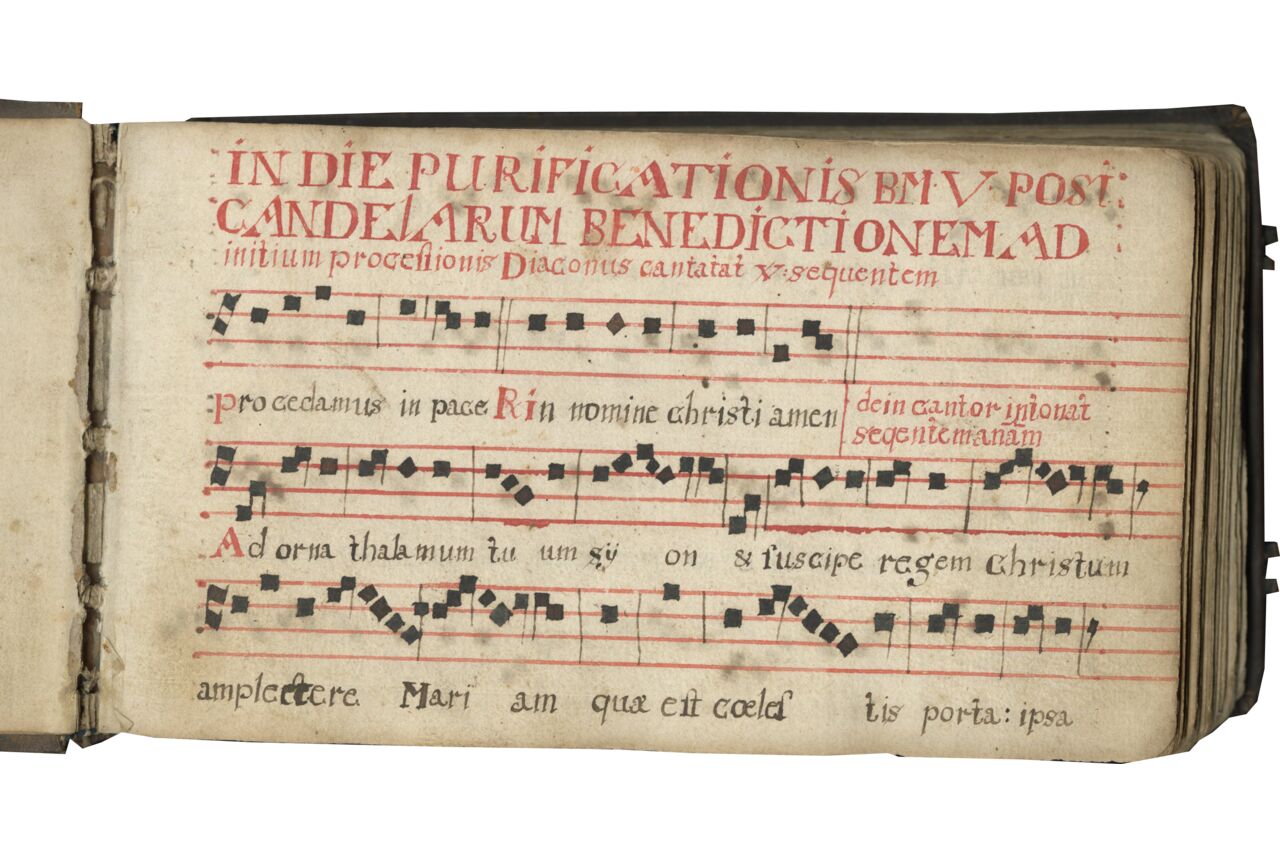 IN DIE PURIFICATIONIS BM·V· POST
CANDELARUM BENEDICTIONEM AD
initium proceſſionis Diaconus cantatat V: sequentem
procedamus in pace R in nomine christi amen
dein cantor intonat
seqentem anãm
Ad orna thalamum tu um sÿ on & ſuscipe regem christum
amplectere Mari am quæ eſt cœleſ tis porta: ipsa